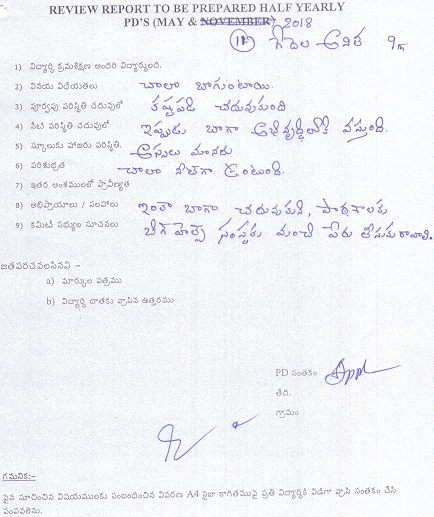 REVIEW REPORT TO BE PREPARED HALF YEARLY
PD'S (MAY & NOVEMBER) 2018
గేదెల అనిత 9
1) విద్యార్థి క్రమశిక్షణ అందరి విద్యార్థులది.
2) వినయ విధేయతలు చాలా బాగుంటాయి.
3) పూర్వపు పరిస్థితి చదువులో కష్టపడి చదువుకుంది
4) నేటి పరిస్థితి చదువులో ఇప్పుడు బాగా అభివృద్ధిలోకి వస్తుంది.
5) స్కూలుకు హాజరు పరిస్థితి. అస్సలు మానదు
6) పరిశుభ్రత చాలా నీట్‌గా ఉంటుంది.
7) ఇతర అంశములలో ప్రావీణ్యత
8) అభిప్రాయాలు / సలహాలు ఇంకా బాగా చదువుకుని, పాఠశాలకు
9) కమిటీ సభ్యుల సూచనలు బిగ్ హెల్ప్ సంస్థకు మంచి పేరు తీసుకురావాలి.
జతపరచవలసినవి –
a) మార్కుల పత్రము
b) విద్యార్థి దాతకు వ్రాసిన ఉత్తరము
PD సంతకం
తేది.
గ్రామం
గమనిక:-
పైన సూచించిన విషయములకు సంబంధించిన వివరణ A4 సైజు కాగితముపై ప్రతి విద్యార్థికి విడిగా వ్రాసి సంతకం చేసి
పంపవలెను.